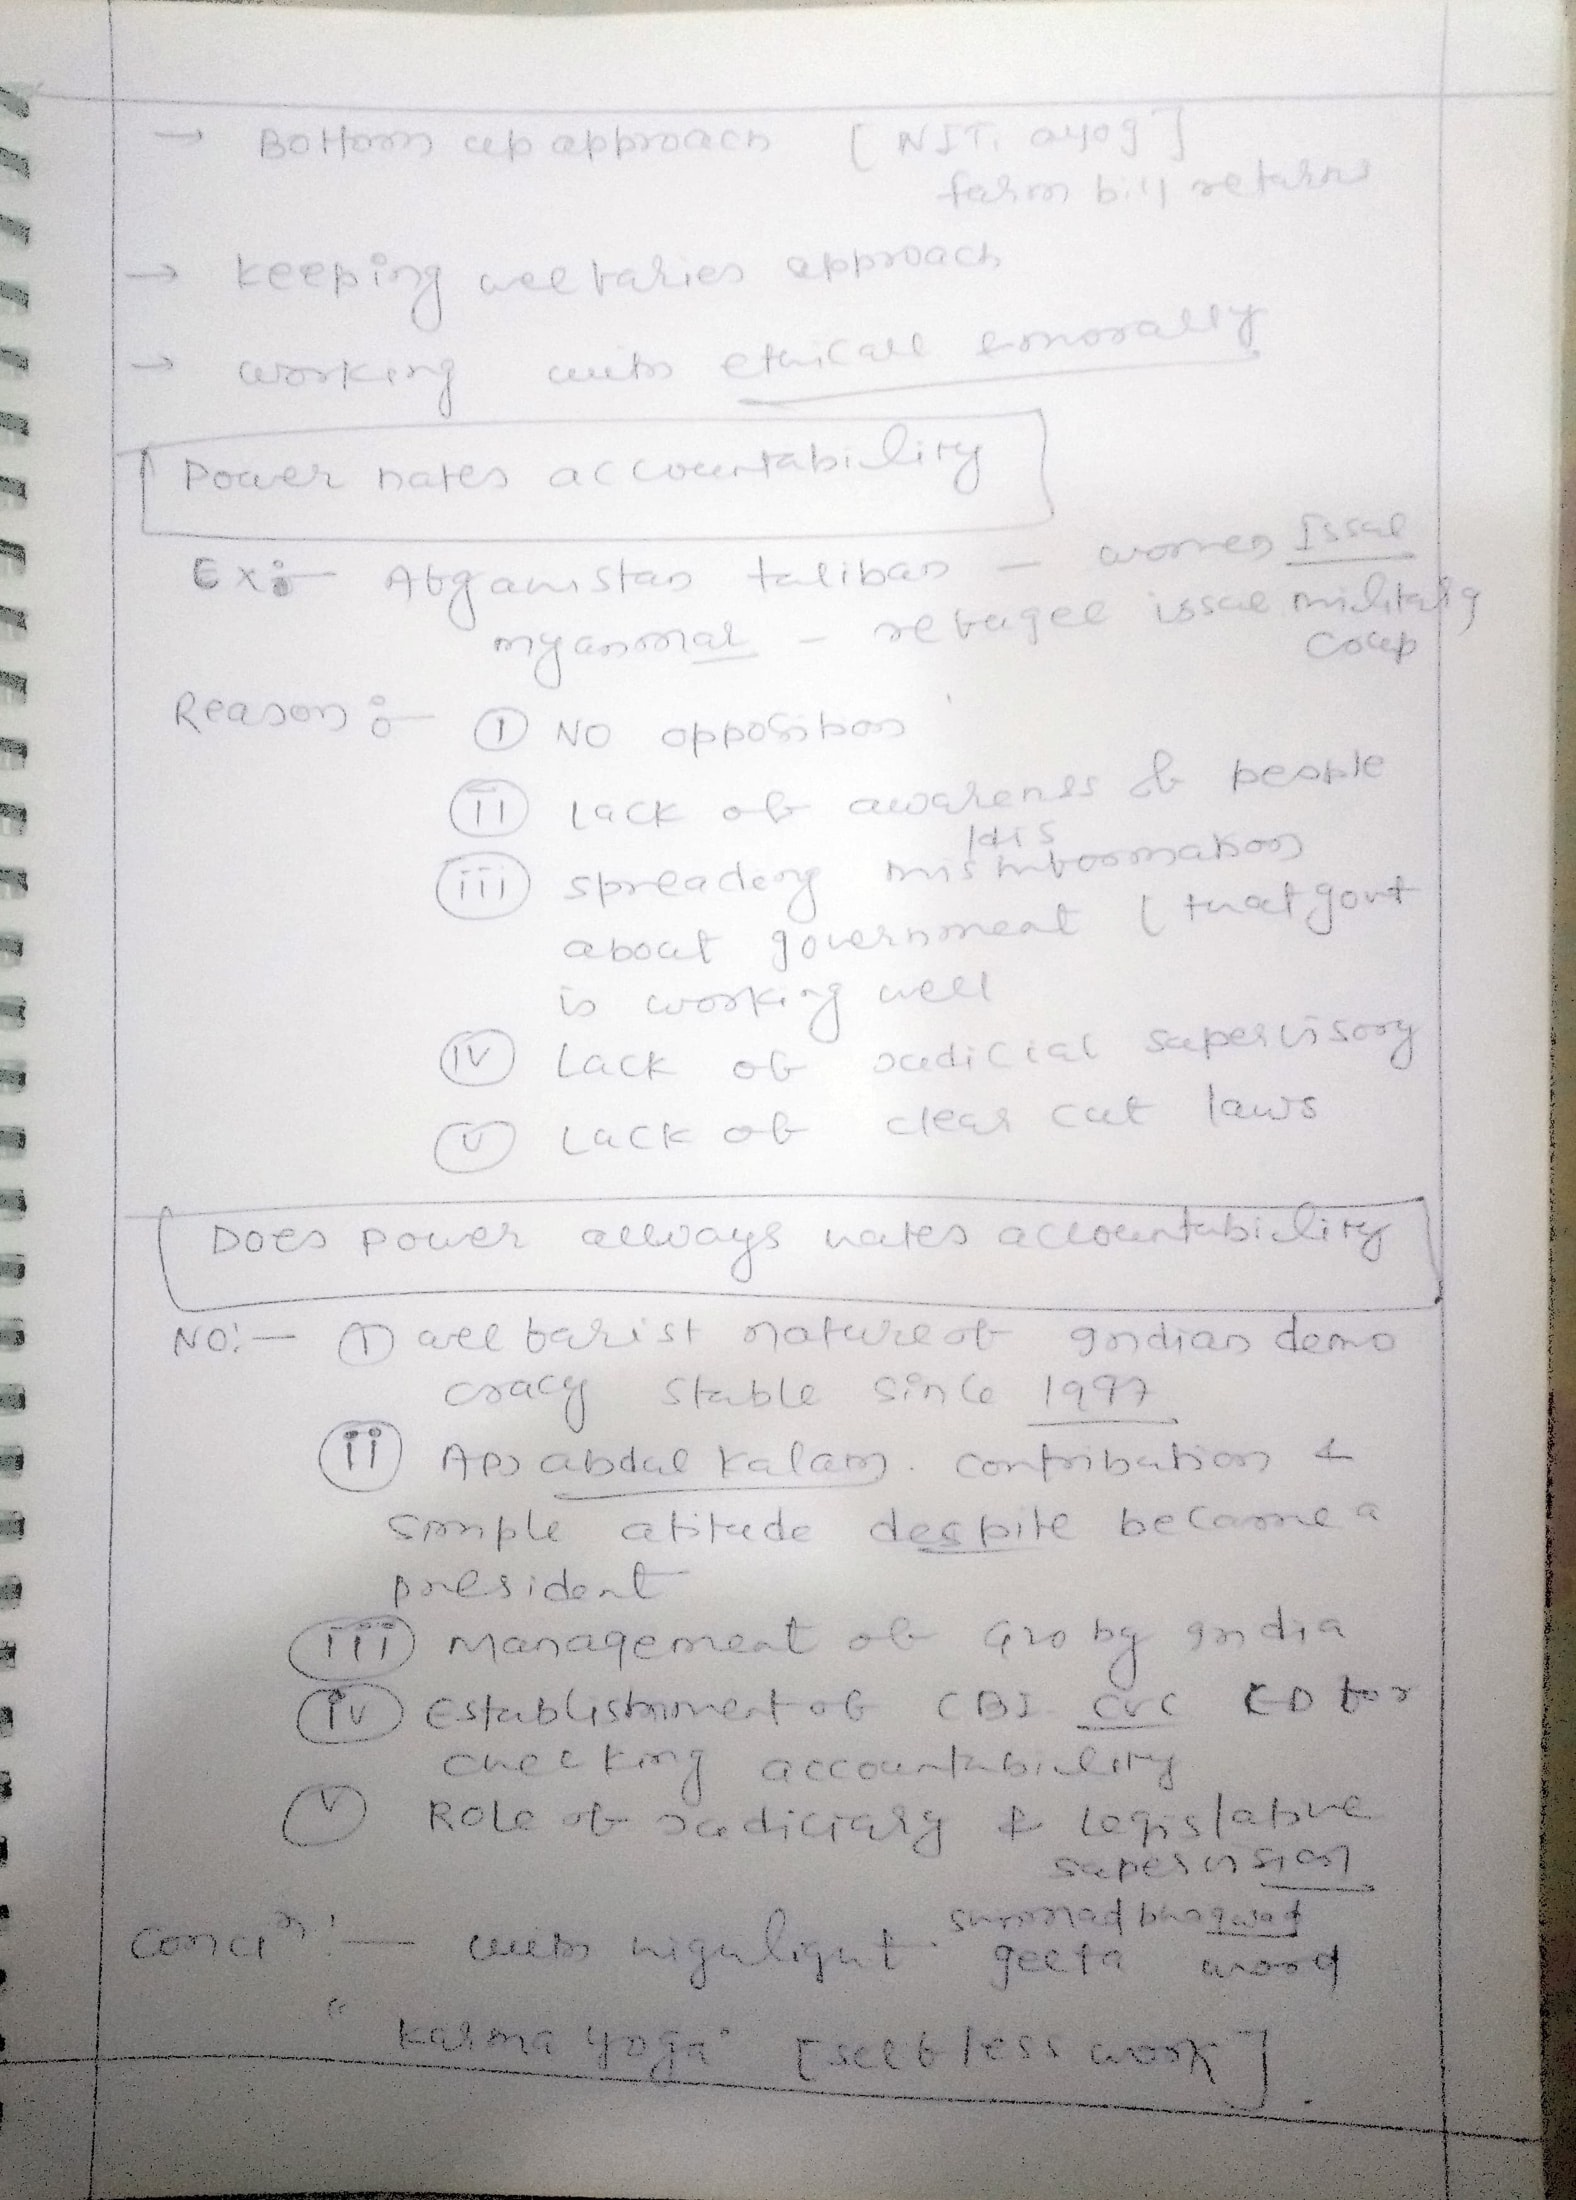 → Bottom up approach [NITi ayog]
farm bill return
→ keeping welfaries approach
→ working with ethicall & morally
Power hates accountability
Ex:- Afganistan taliban - women Issue
myanmar - refugee issue military
coup
Reason :- (I) NO opposition
(ii) Lack of awarenss of people
/dis
(iii) spreading misinformation
about government (that govt
is working well
(iv) Lack of Judicial supervisory
(v) Lack of clear cut laws
Does power allways hates accountability
NO:- (I) welfarist nature of Indian demo
cracy stable since 1997
(ii) APJ abdul kalam. contribution &
simple atitude despite became a
president
(iii) Management of G20 by India
(iv) Establishment of CBI CVC ED for
checking accountability
(v) Role of Judiciary & legislative
supervision
shrimad bhagwad
Concln:- with highlight geeta word
"karma yoga" [selfless work].